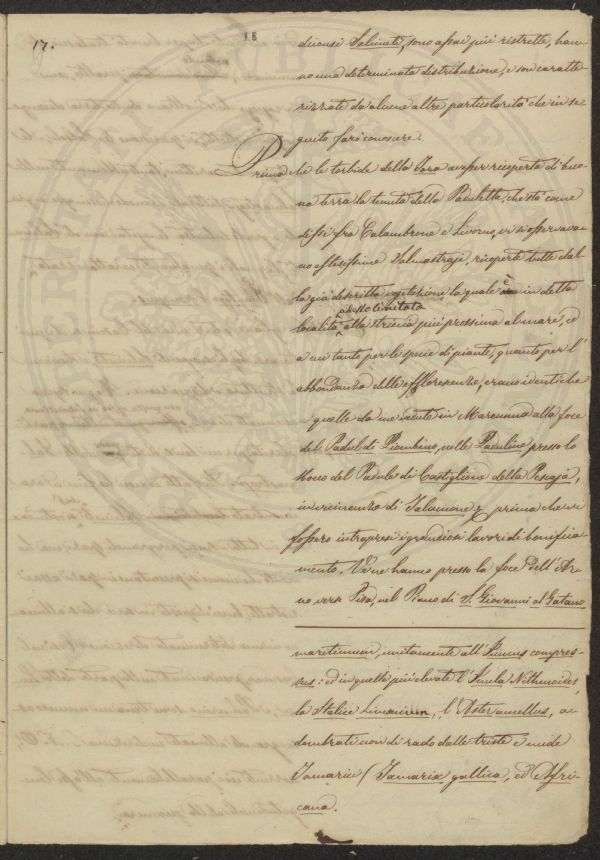 17.
18
diconsi Salineti, sono assai più ristrette, han-
no una determinata distribuzione, e son caratte-
rizzate da alcune altre particolarità che in se-
guito farò conoscere.
Prima che le torbide della Tora avesser ricoperta di buo-
na terra la tenuta della Paduletta, che sta come
dissi fra Calambrone e Livorno, vi si osservava-
no estesissime Salmastraje, ricoperte tutte dal-
la già descritta vegetazione la quale è in detta
adesso limitata
località alla striscia più prossima al mare, ed
a cui tanto per le specie di piante, quanto per l'
abbondanza delle efflorescenze, erano identiche
quelle da me vedute in Maremma alla foce
del Padul di Piombino, nelle Paduline presso lo
sbocco del Padule di Castiglione della Pescaja,
in vicinanza di Talamone, prima che vi
fossero intrapresi i grandiosi lavori di bonifica-
mento. Ve ne hanno presso la foce dell'Ar-
no verso Pisa, nel Piano di S. Giovanni al Gatano
maritimum, unitamente all'Juncus compres-
sus: ed in quelle più elevate l'Inula
la Statice Limonium, l'Aster amellus, a-
dombrati non di rado dalle triste e nude
Tamarici (Tamarix gallica, ed Afri-
cana.